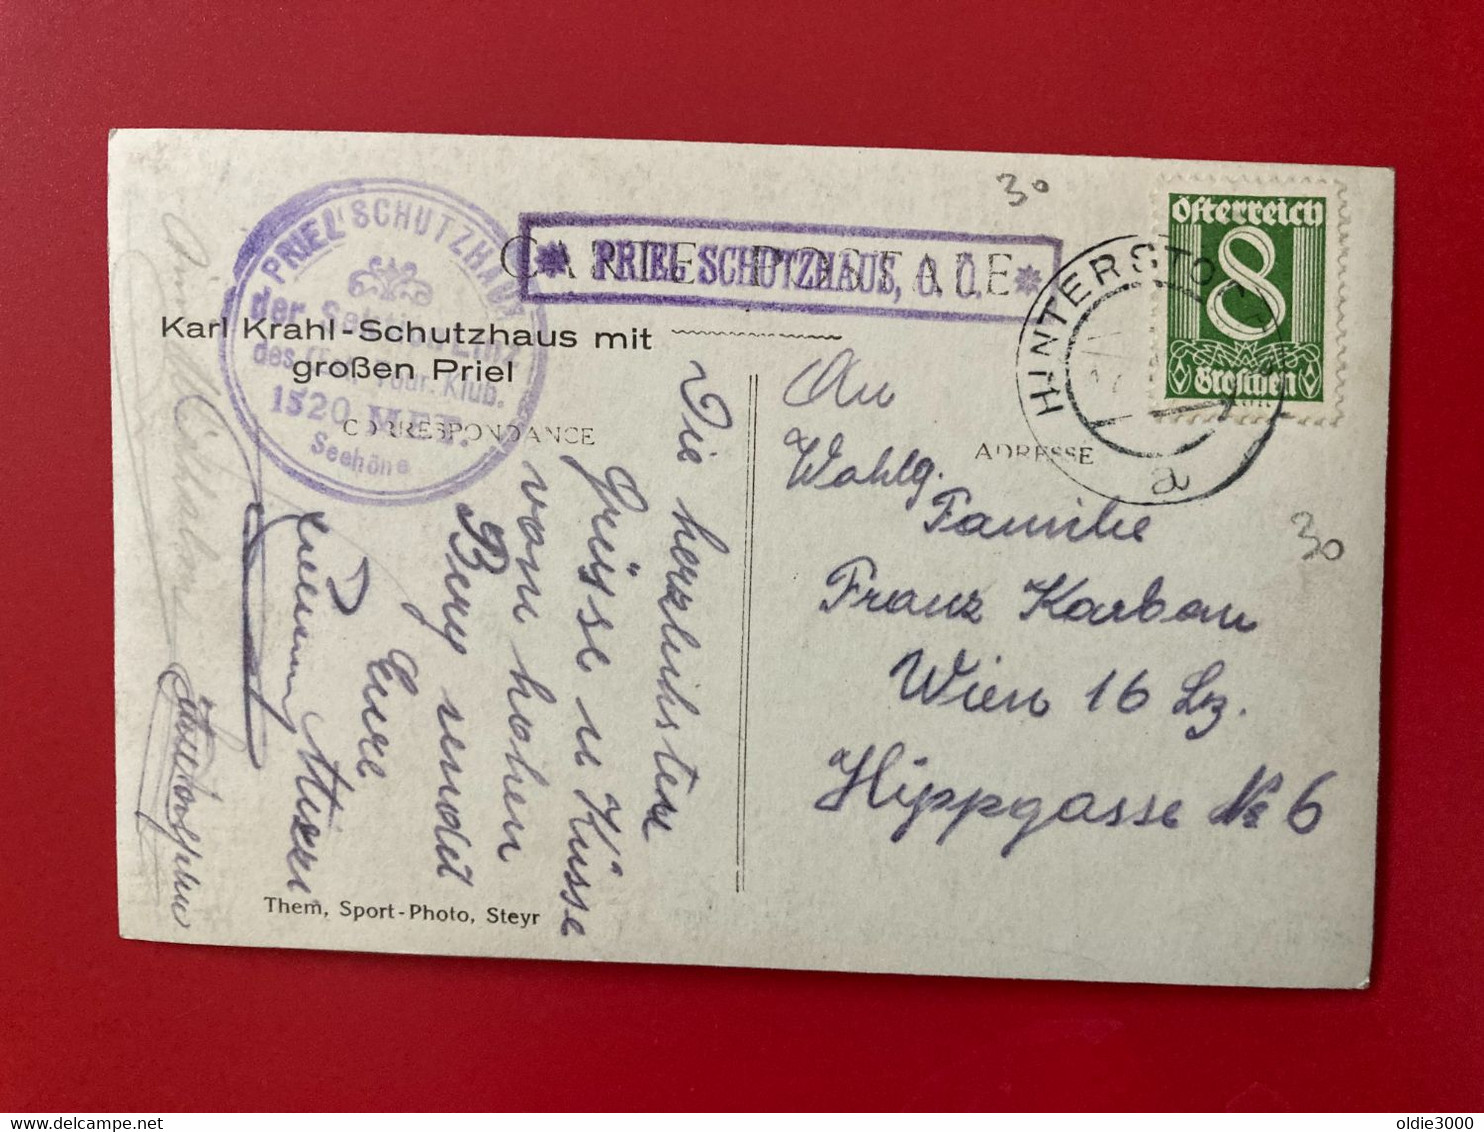 PRIEL SCHUTZHAUS
der Section Linz
des Öst. Tour. Klub.
1520 MET.
Seehöhe
CARTE POSTALE
* PRIEL SCHUTZHAUS, O. Ö. *
Karl Krahl-Schutzhaus mit
großen Priel
CORRESPONDANCE
ADRESSE
30
Österreich
8
Groschen
HINTERSTODER
a
30
Die herzlichsten
Grüsse u Küsse
vom hohen
Berg sendet
Eure
An
Wohlg.
Familie
Franz Karban
Wien 16 Bz.
Hippgasse No 6
Them, Sport-Photo, Steyr
www.delcampe.net
oldie3000